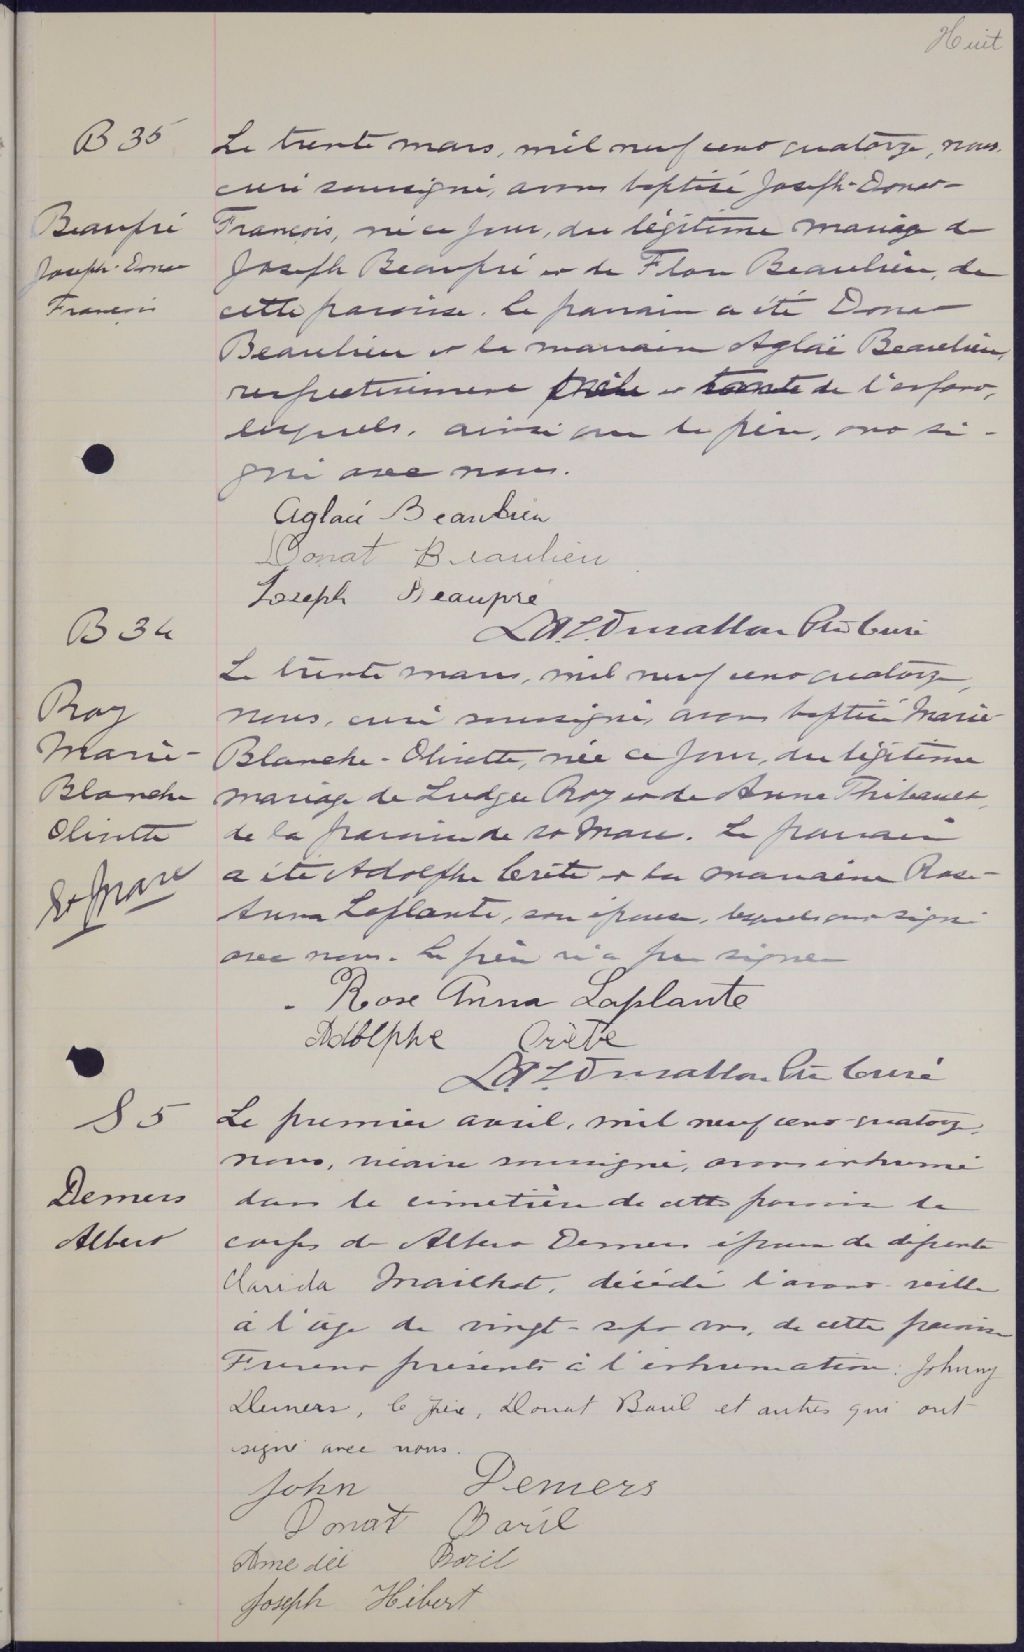 Huit
B 35
Beaupré
Joseph-Donat
François
Le trente mars, mil neuf cent quatorze, nous,
curé soussigné, avons baptisé Joseph-Donat-
François, né ce jour, du légitime mariage de
Joseph Beaupré et de Flore Beaulieu, de
cette paroisse. Le parrain a été Donat
Beaulieu et la marraine Aglaé Beaulieu,
respectivement oncle et tante de l'enfant,
lesquels, ainsi que le père, ont si-
gné avec nous.
Aglaé Beaulieu
Donat Beaulieu
Joseph Beaupré
Ptre Curé
B 36
Roy
Marie-
Blanche
Olivette
St Marc
Le trente mars, mil neuf cent quatorze,
nous, curé soussigné, avons baptisé Marie
Blanche-Olivette, née ce jour, du légitime
mariage de Ludger Roy et de Anna Thibault,
de la paroisse de St Marc. Le parrain
a été Adolphe Crête et la marraine Rose-
Anna Laplante, son épouse, lesquels ont signé
avec nous. Le père n'a pu signer
Rose Anna Laplante
Adolphe Crête
Ptre Curé
S 5
Demers
Albert
Le premier avril, mil neuf cent quatorze,
nous, vicaire soussigné, avons inhumé
dans le cimetière de cette paroisse le
corps de Albert Demers époux de défunte
Clarida Mailhot, décédé l'avant-veille
à l'âge de vingt-sept ans, de cette paroisse
Furent présents à l'inhumation: Johnny
Demers, le père, Donat Baril et autres qui ont
signé avec nous.
John Demers
Donat Baril
Amedée Baril
Joseph Hébert